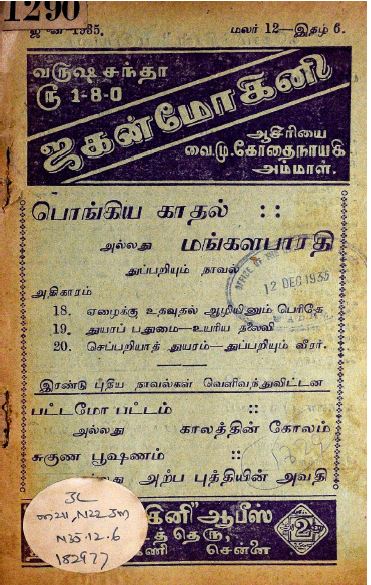 1290
1935. மலர் 12—இதழ் 6.
வருஷ சந்தா
ரூ 1-8-0
ஜகன்மோகினி
ஆசிரியை
வை.மு.கோதைநாயகி
அம்மாள்.
பொங்கிய காதல் ::
அல்லது மங்களபாரதி
துப்பறியும் நாவல்
அதிகாரம்
18. ஏழைக்கு உதவுதல் ஆழியினும் பெரிதே
19. துயரப் பதுமை—உயரிய தலைவி
20. செப்பறியாத் துயரம்—துப்பறியும் வீரர்.
இரண்டு புதிய நாவல்கள் வெளிவந்துவிட்டன
பட்டமோ பட்டம் ::
அல்லது காலத்தின் கோலம்
சுகுண பூஷணம் ::
அற்ப புத்தியின் அவதி
கினி" ஆபீஸ்
த் தெரு,
ணி சென்னை
2
12 DEC 1935
N35.12.6
182977